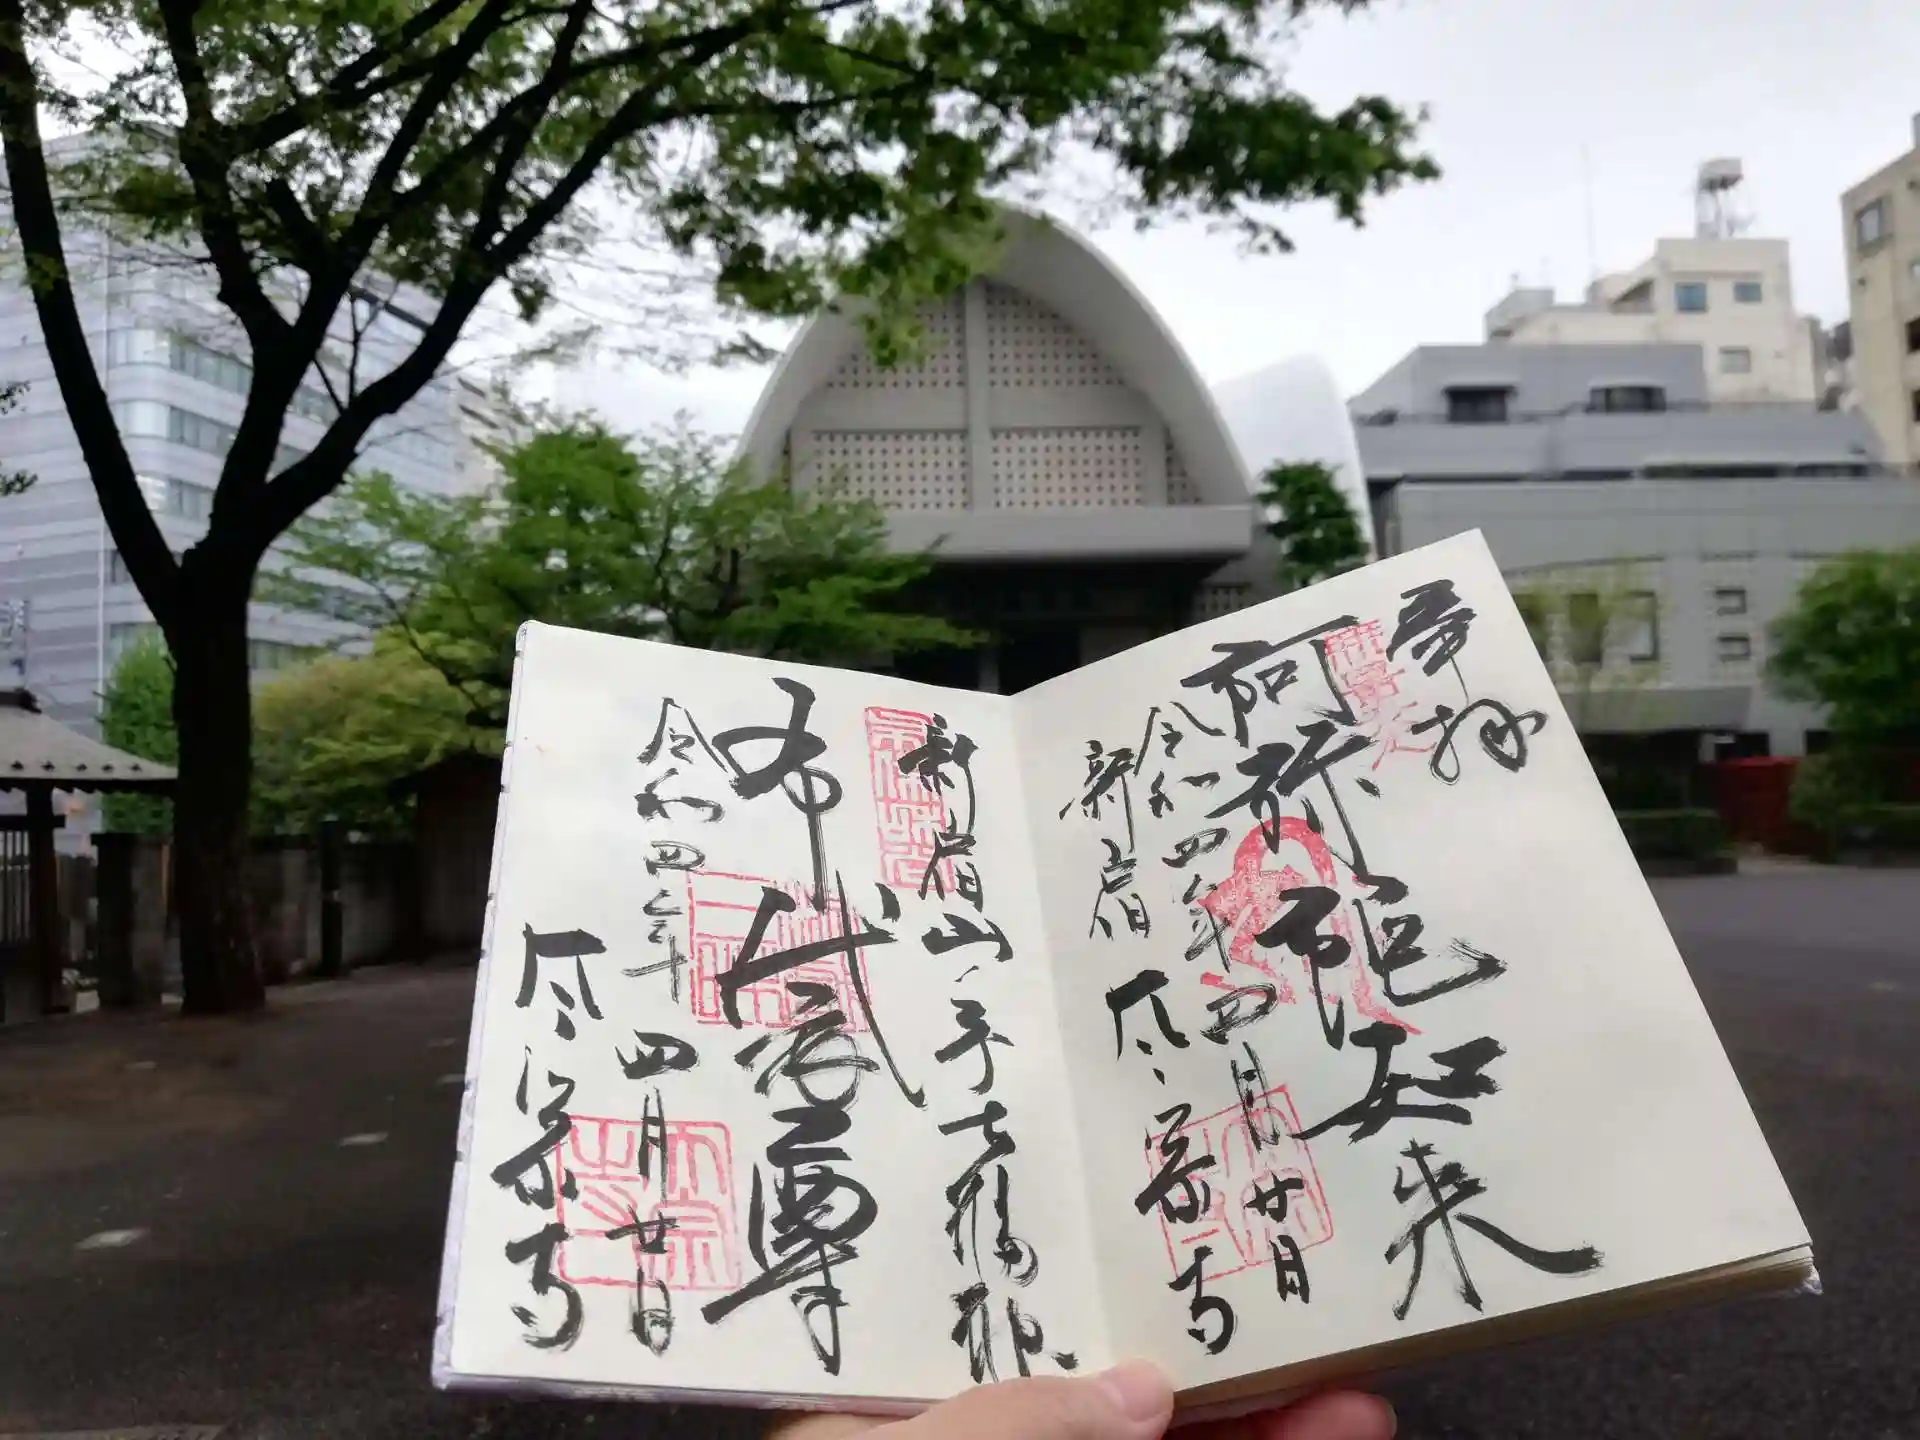 奉拝
阿弥陀如来
令和四年四月廿日
新宿 太宗寺
新宿山ノ手七福神
布袋尊
令和四年
四月廿日
太宗寺